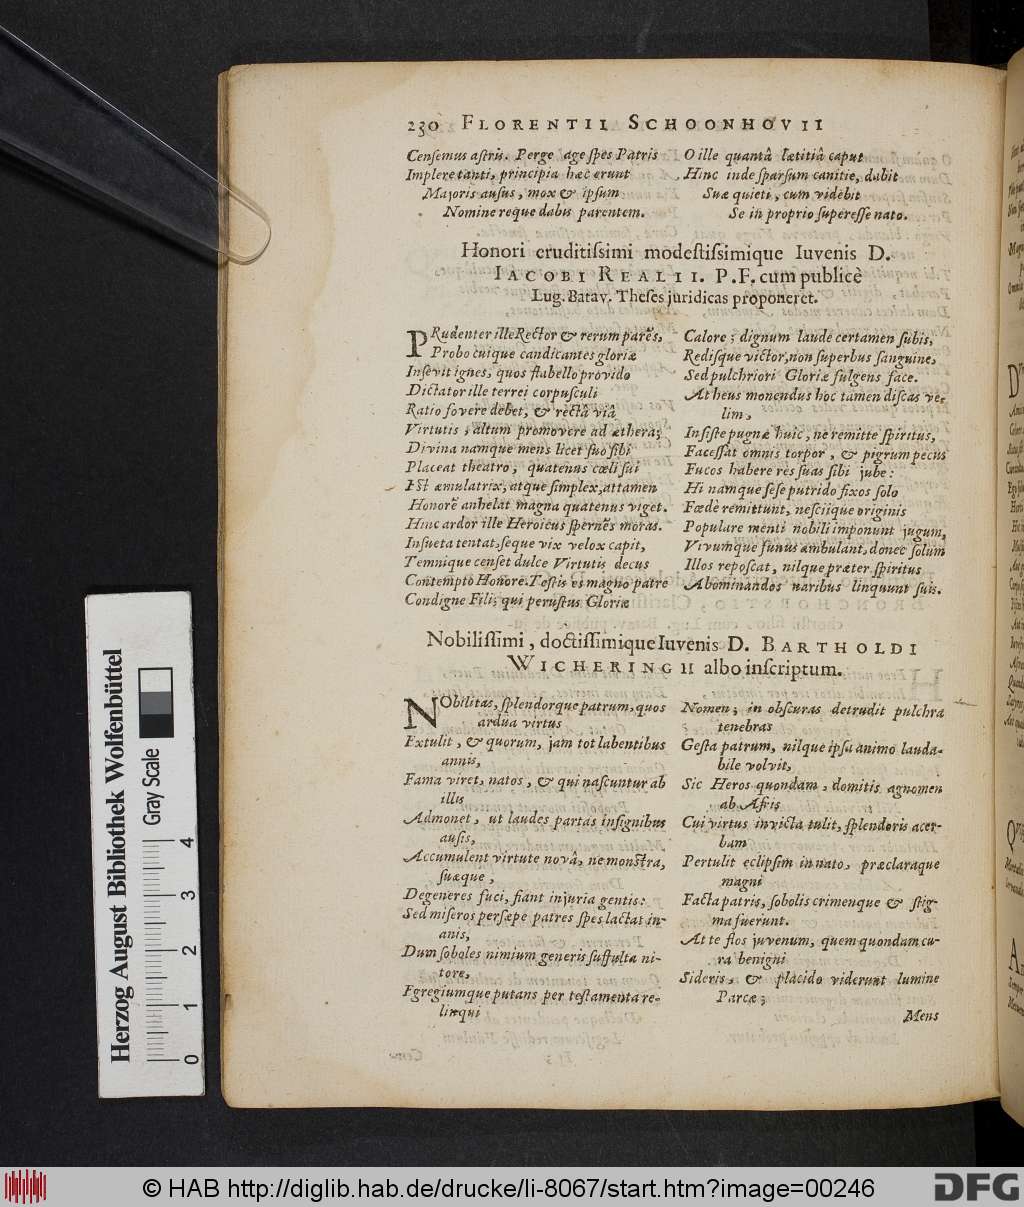 230 FLORENTII SCHOONHOVII
Censemus astris. Perge age spes Patris
Implere tanti, principia hæc erunt
Majoris ausus, mox & ipsum
Nomine reque dabis parentem.
O ille quantâ lætitiâ caput
Hinc inde sparsum canitie, dabit
Suæ quieti, cum videbit
Se in proprio superesse nato.
Honori eruditissimi modestissimique Iuvenis D.
IACOBI REALII. P.F. cum publicè
Lug. Batav. Theses juridicas proponeret.
PRudenter ille Rector & rerum parẽs,
Probo cuique candicantes gloriæ
Insevit ignes, quos flabello provido
Dictator ille terrei corpusculi
Ratio fovere debet, & rectâ viâ
Virtutis, altum promovere ad æthera;
Divina namque mens licet suo sibi
Placeat theatro, quatenus cœli sui
Est æmulatrix, atque simplex, attamen
Honorẽ anhelat magna quatenus viget.
Hinc ardor ille Heroicus spernẽs moras.
Insueta tentat, seque vix velox capit,
Temnique censet dulce Virtutis decus
Contempto Honore. Testis es magno patre
Condigne Fili; qui perustus Gloriæ
Calore; dignum laude certamen subis,
Redisque victor, non superbus sanguine,
Sed pulchriori Gloriæ fulgens face.
At heus monendus hoc tamen discas ve-
lim,
Insiste pugnæ huic, ne remitte spiritus,
Facessat omnis torpor, & pigrum pecus
Fucos habere res suas sibi jube:
Hi namque sese putrido fixos solo
Fœdè remittunt, nesciique originis
Populare menti nobili imponunt jugum,
Vivumque funus ambulant, donec solum
Illos reposcat, nilque præter spiritus
Abominandos naribus linquunt suis.
Nobilissimi, doctissimique Iuvenis D. BARTHOLDI
WICHERINGII albo inscriptum.
NObilitas, splendorque patrum, quos
ardua virtus
Extulit, & quorum, jam tot labentibus
annis,
Fama viret, natos, & qui nascuntur ab
illis
Admonet, ut laudes partas insignibus
ausis,
Accumulent virtute novâ, ne monstra,
suæque,
Degeneres fuci, fiant injuria gentis:
Sed miseros persæpe patres spes lactat in-
anis,
Dum soboles nimium generis suffulta ni-
tore,
Egregiumque putans per testamenta re-
linqui
Nomen; in obscuras detrudit pulchra
tenebras
Gesta patrum, nilque ipsa animo lauda-
bile volvit,
Sic Heros quondam, domitis agnomen
ab Afris
Cui virtus invicta tulit, splendoris acer-
bam
Pertulit eclipsim in nato, præclaraque
magni
Facta patris, sobolis crimenque & stig-
ma fuerunt.
At te flos juvenum, quem quondam cu-
ra benigni
Sideris, & placido viderunt lumine
Parcæ;
Mens
Herzog August Bibliothek Wolfenbüttel
Gray Scale
0 1 2 3 4
© HAB http://diglib.hab.de/drucke/li-8067/start.htm?image=00246
DFG